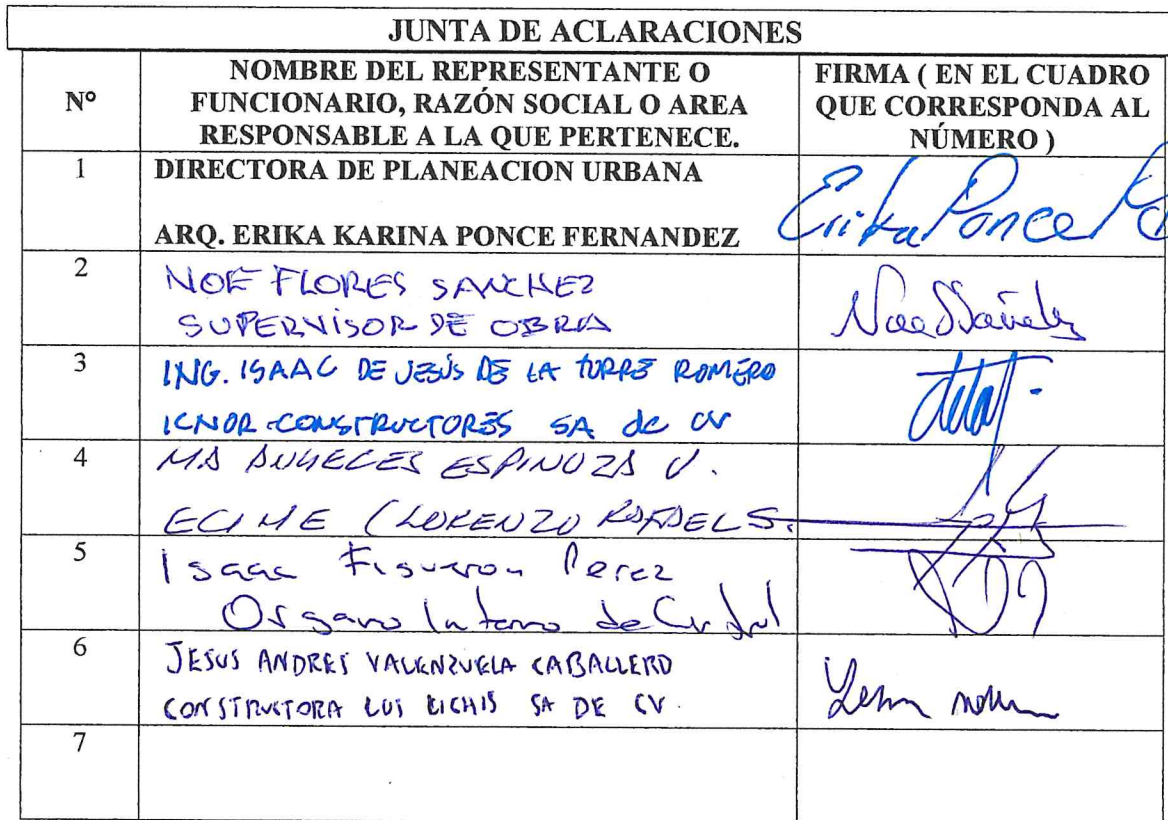 JUNTA DE ACLARACIONES
N° NOMBRE DEL REPRESENTANTE O FUNCIONARIO, RAZÓN SOCIAL O AREA RESPONSABLE A LA QUE PERTENECE. FIRMA ( EN EL CUADRO QUE CORRESPONDA AL NÚMERO )
1 DIRECTORA DE PLANEACION URBANA
ARQ. ERIKA KARINA PONCE FERNANDEZ Erika Ponce
2 NOE FLORES SANCHEZ
SUPERVISOR DE OBRA
3 ING. ISAAC DE JESÚS DE LA TORRE ROMERO
ICNOR CONSTRUCTORES SA de CV
4 MA ANGELES ESPINOZA V.
ECIME (LORENZO RAFAEL S.
5 Isaac Figueroa Perez
Organo Interno de Control
6 JESUS ANDRES VALENZUELA CABALLERO
CONSTRUCTORA LOS SA DE CV
7